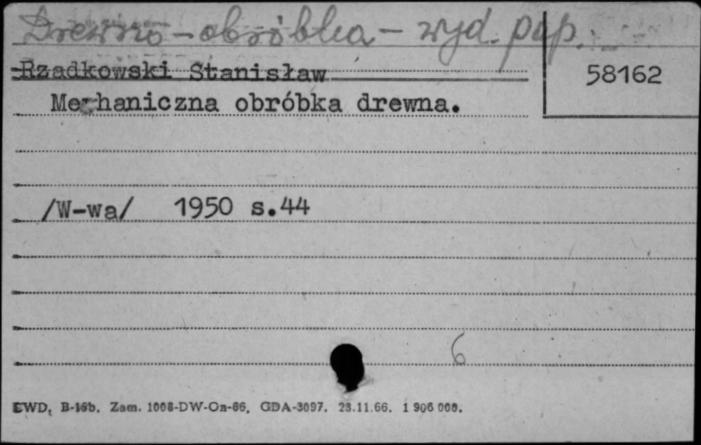 Drewno - obróbka - wyd. pop.
Rządkowski Stanisław
58162
Mechaniczna obróbka drewna.
/W-wa/ 1950 s.44
6
CWD, B-16b. Zam. 1008-DW-On-66. GDA-3097. 23.11.66. 1 906 000.